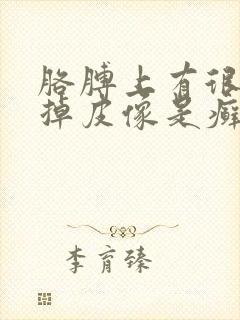 胳膊上有很
掉皮像是癣
李育臻